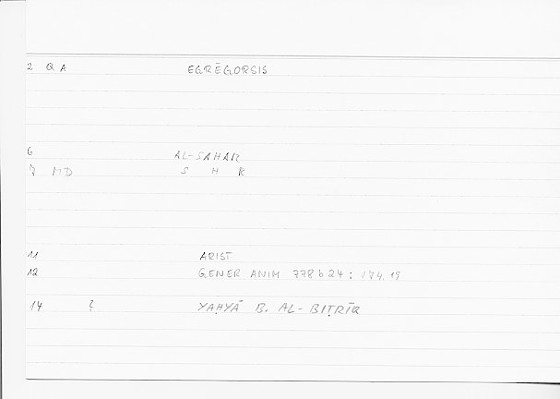 2 QA EGRĒGORSIS
6 AL-SAHAR
7 MD S H R
11 ARIST
12 GENER ANIM 778b24; 194.19
14 ? YAḤYĀ B. AL-BIṬRĪQ